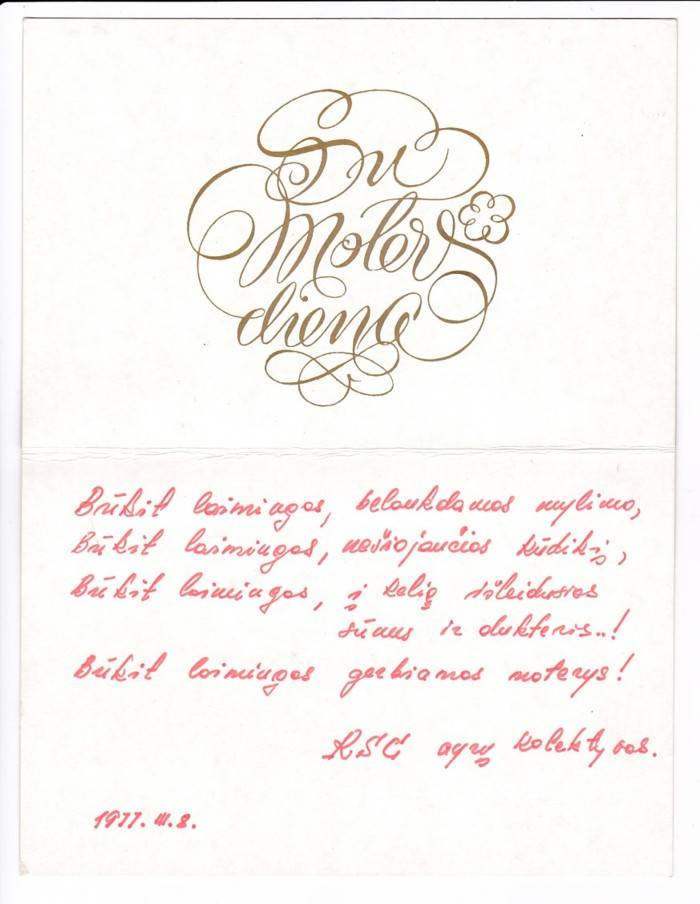 Su
Moters
diena
Būkit laimingos, belaukdamos mylimo,
Būkit laimingos, nešiojančios kūdikį,
Būkit laimingos, į kelią išleidusios
sūnus ir dukteris..!
Būkit laimingos gerbiamos moterys!
KSC vyrų kolektyvas.
1977.III.8.